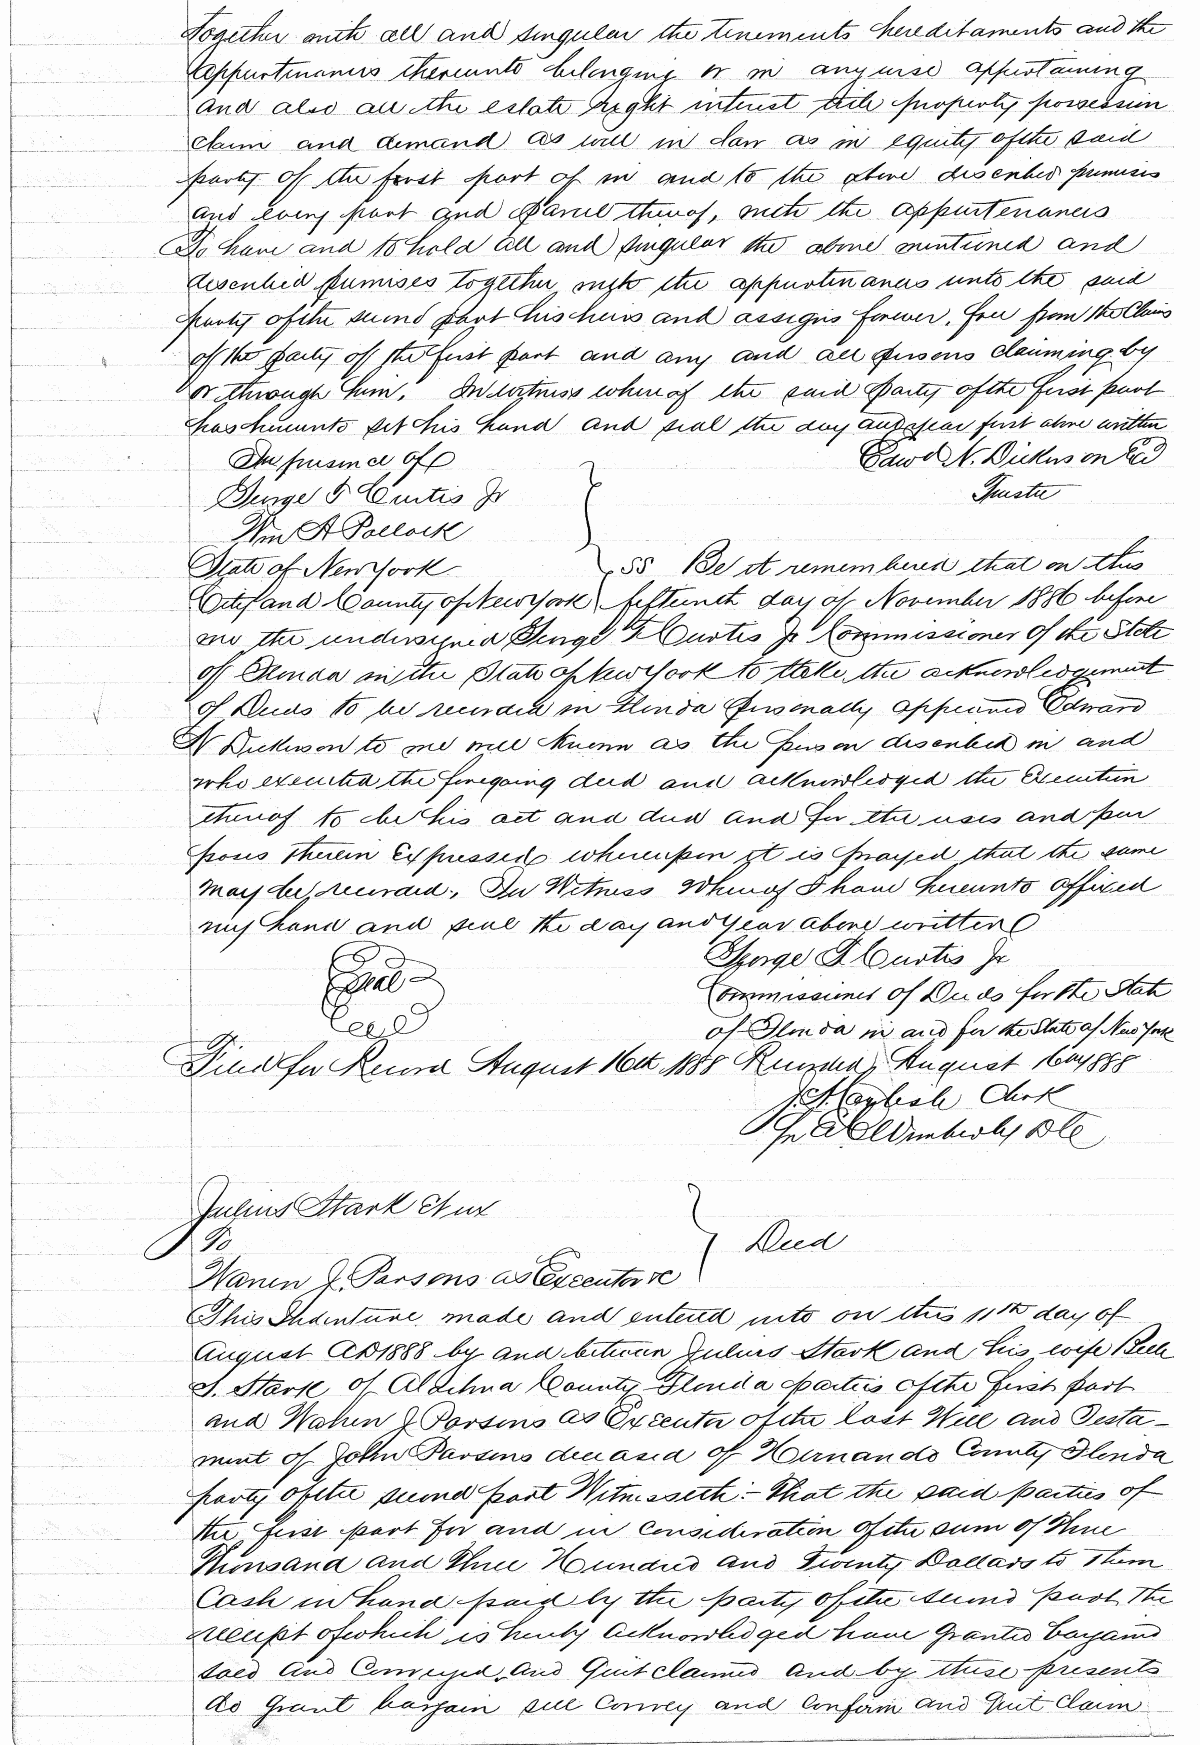 Together with all and singular the tenements hereditaments and the
appurtinances thereunto belonging or in anywise appertaining
and also all the estate right interest title property possession
claim and demand as well in law as in equity of the said
party of the first part of in and to the above described premises
and every part and parcel thereof, with the appurtenances
To have and to hold all and singular the above mentioned and
described premises together with the appurtinances unto the said
party of the second part his heirs and assigns forever, free from the Claims
of the party of the first part and any and all persons claiming by
or through him. In witness whereof the said party of the first part
has hereunto set his hand and seal the day and year first above written
In presence of Edwd N. Dickerson
George F Curtis Jr Trustee
Wm A Pollock
State of New York } SS Be it remembered that on this
City and County of New York fifteenth day of November 1886 before
me the undersigned George F Curtis Jr Commissioner of the State
of Florida in the State of New York to take the acknowledgement
of Deeds to be recorded in Florida personally appeared Edward
N Dickerson to me well known as the person described in and
who executed the foregoing deed and acknowledged the Execution
thereof to be his act and deed and for the uses and pur
poses therein Expressed whereupon it is prayed that the same
may be recorded. In Witness Whereof I have hereunto affixed
my hand and seal the day and year above written
Seal George F. Curtis Jr
Commissioner of Deeds for the State
of Florida in and for the State of New York
Filed for Record August 16th 1888 Recorded August 16th 1888
Clerk
Wimberly D C
Julius Stark et ux
To } Deed
Warren J. Parsons as Executor &c
This Indenture made and entered into on this 11th day of
August AD 1888 by and between Julius Stark and his wife
S. Stark of Alachua County Florida parties of the first part
and Warren J Parsons as Executor of the last Will and Testa-
ment of John Parsons deceased of Hernando County Florida
party of the second part Witnesseth:- That the said parties of
the first part for and in consideration of the sum of Three
Thousand and Three Hundred and Twenty Dollars to Them
Cash in hand paid by the party of the second part the
receipt of which is hereby acknowledged have granted bargained
sold and Conveyed and Quit claimed and by these presents
do grant bargain sell convey and confirm and Quit Claim